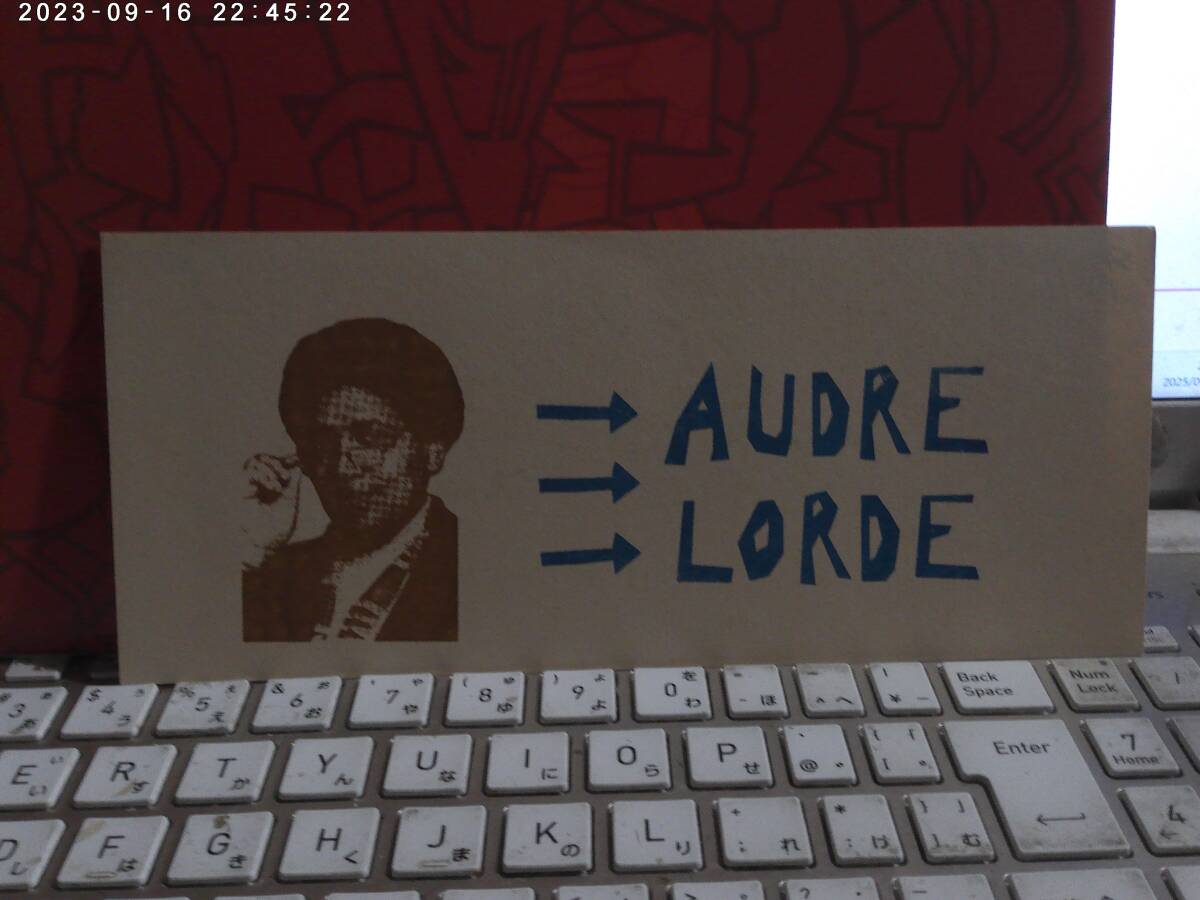 2023-09-16 22:45:22
AUDRE
LORDE
2025/0
# 3 あ
$ 4 う
% 5 え
& 6 お
' 7 や
( 8 ゆ
) 9 よ
0 わ
- ほ
^ へ
¥ ー
Back
Space
Num
Lock
/
E い
R す
T か
Y ん
U な
I に
O ら
P せ
@
[
Enter
7
Home
D し
F は
G き
H く
J ま
K の
L り
+ ; れ
* : け
} ] む
4
←